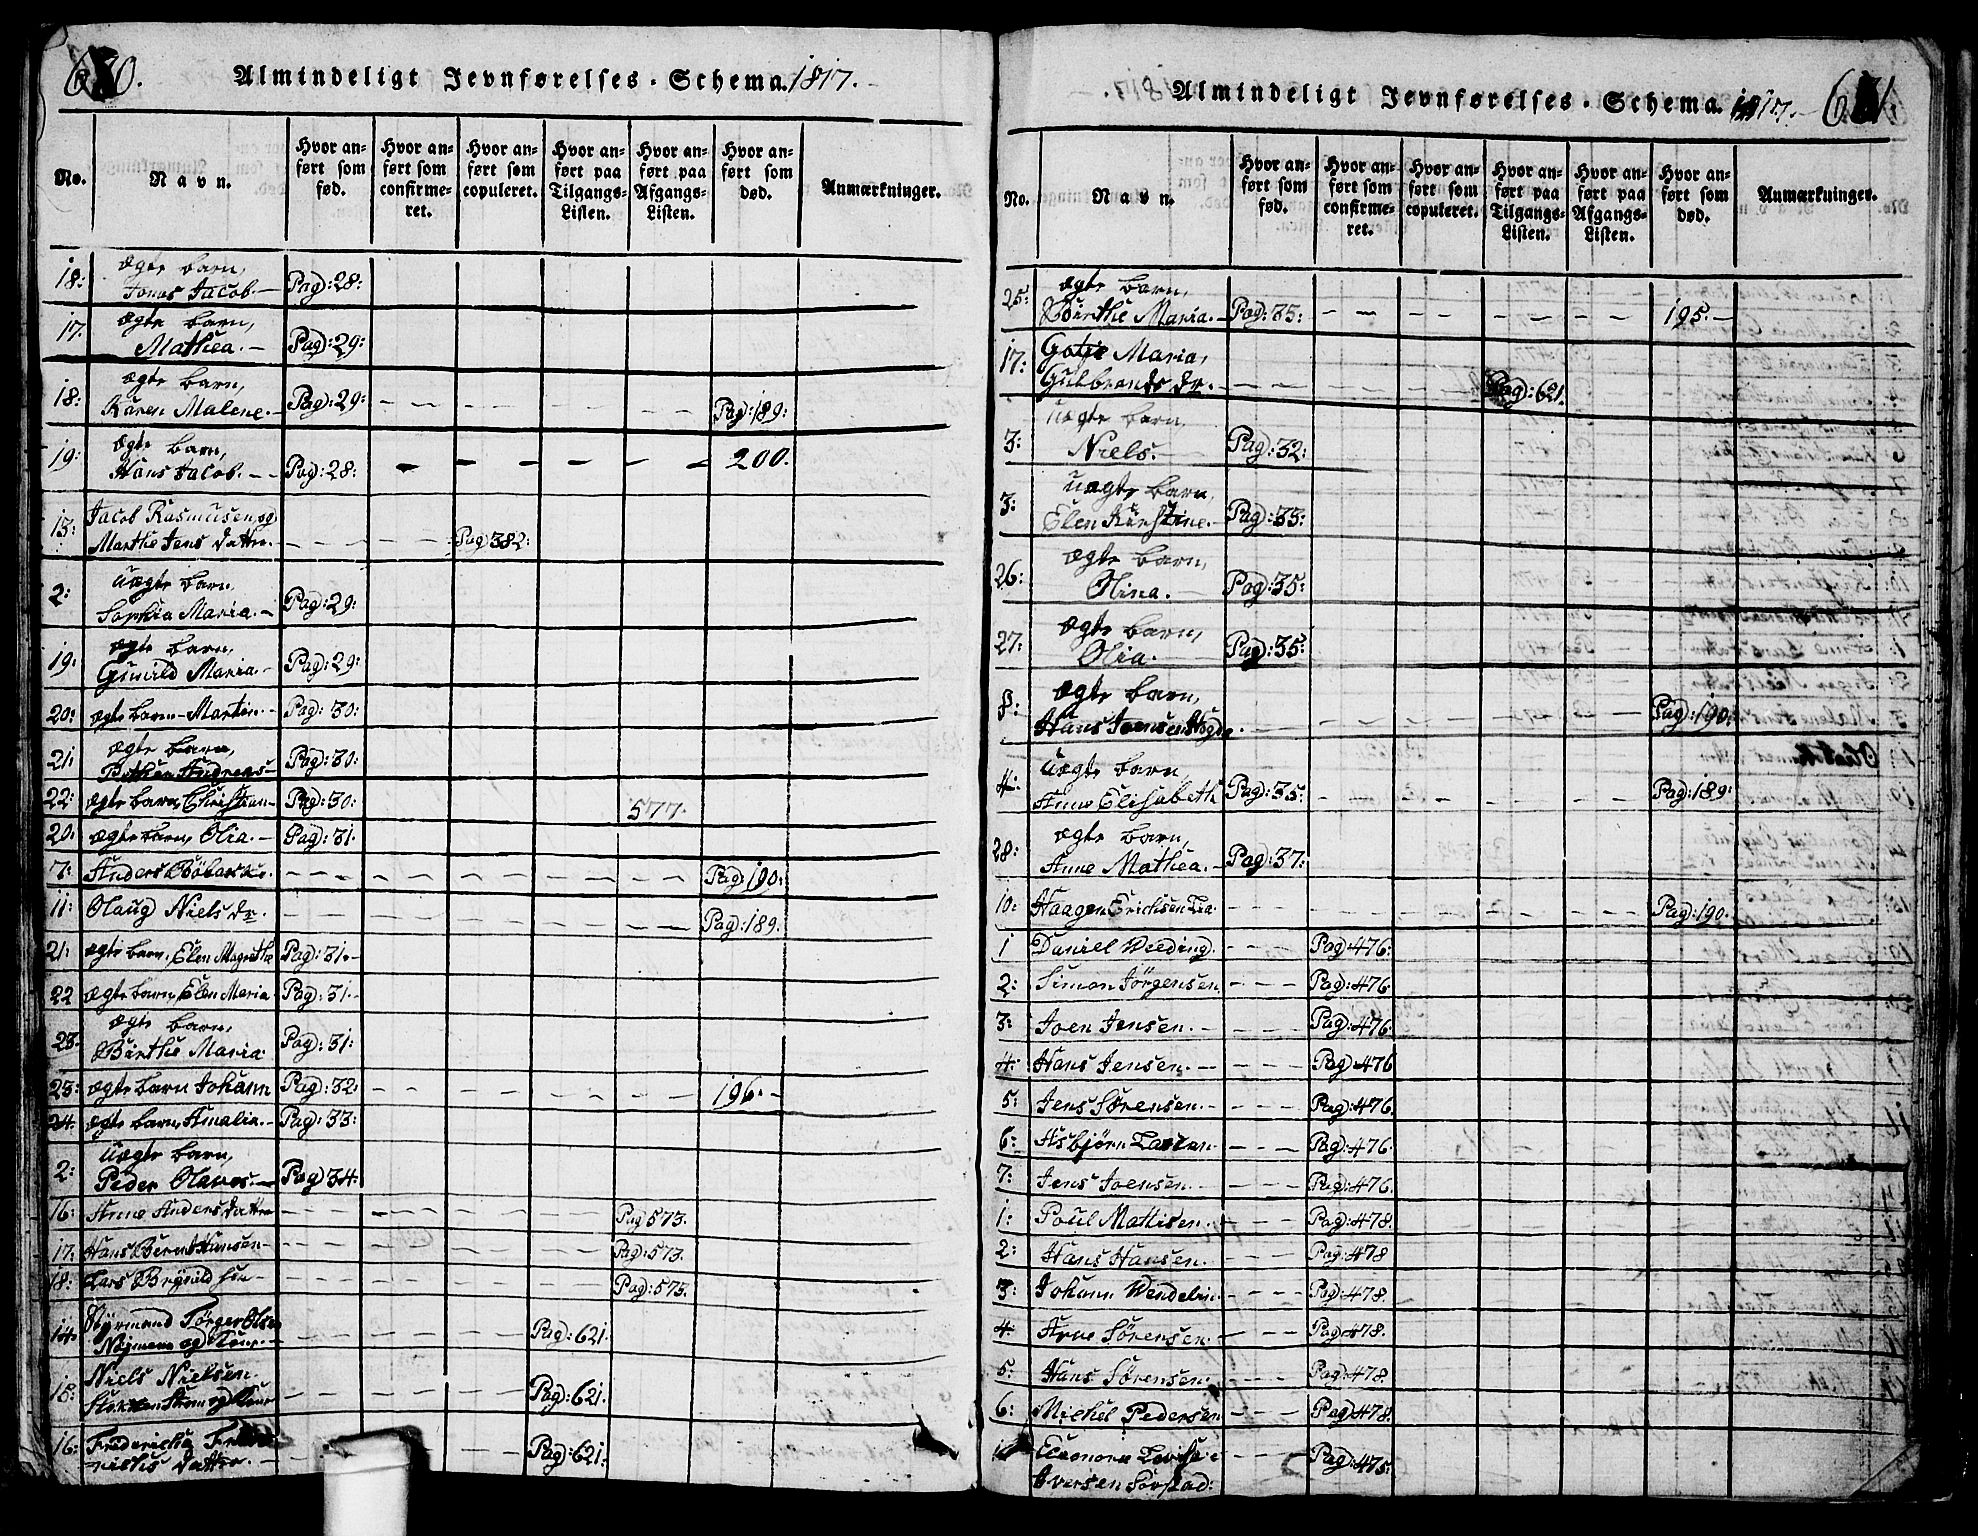 Almindeligt Jevnførelses-Schema 1817.
No.
Navn.
Hvor anført som fød.
Hvor anført som confirmeret.
Hvor anført som copuleret.
Hvor anført paa Tilgangs-Listen.
Hvor anført paa Afgangs-Listen.
Hvor anført som død.
Anmærkninger.
18: Ægte barn,
Jonas Jacob. — Pag: 28:
17. Ægte barn,
Mathea. — Pag: 29:
18. Ægte barn,
Karen Malene — Pag: 29: Pag: 189:
19: Ægte barn,
Hans Jacob. — Pag: 28: 200.
13: Jacob Rasmusen og
Marthe Jens Dattr. Pag 382:
2: Uægte barn,
Sophia Maria. — Pag: 29:
19: Ægte barn,
Gunild Maria. — Pag: 29:
20: Ægte barn — Martin. — Pag: 30:
21. Ægte barn,
Andreas — Pag: 30:
22: Ægte barn, Christian — Pag: 30: 577.
20: Ægte barn, Olia. — Pag: 31.
7: Anders Pag: 190:
11: Olaug Niels Dr. Pag: 189.
21: Ægte barn, Elen Magrethe Pag: 31. —
22 Ægte barn, Elen Maria. Pag: 31. —
23. Ægte barn,
Birthe Maria. Pag: 31:
23: Ægte barn Johann Pag: 32: 196. —
24. Ægte barn, Amalia. — Pag: 33:
2: Uægte barn,
Peder Olaves. — Pag 34.
16: Anne Anders Dattr Pag 573.
17: Hans Bernt Hansen — Pag: 573.
18: Lars Pag: 573.
14. Torger Olsen
og Pag: 621.
15: Niels Nielsen
Pag: 621.
16:
Dattr. Pag: 621:
Almindeligt Jevnførelses-Schema 1817. —
No.
Navn.
Hvor anført som fød.
Hvor anført som confirmeret.
Hvor anført som copuleret.
Hvor anført paa Tilgangs-Listen.
Hvor anført paa Afgangs-Listen.
Hvor anført som død.
Anmærkninger.
25: Ægte barn,
Dorthe Maria. — Pag: 35: 195. —
17: Maria,
Gulbrands Dr. Pag: 621.
3: Uægte barn,
Niels. — Pag: 32:
3: Uægte barn,
Elen Kirstine. — Pag: 35:
26: Ægte barn,
Olina. — Pag: 35:
27: Ægte barn,
Olia. Pag: 35:
8: Ægte barn,
Hans Pag: 190:
4: Uægte barn,
Anne Elisabeth Pag: 35: Pag: 189:
28: Ægte barn,
Anne Mathea. — Pag: 37:
10: Haagen Erichsen Pag: 190.
1 Daniel Weeding. Pag: 476:
2: Simon Jörgensen Pag: 476.
3: Joen Jensen. — Pag: 476:
4: Hans Jensen. — Pag: 476
5: Jens Sörensen. — Pag: 476.
6: Asbjörn Larsen. Pag: 476.
7: Jens Joensen. — Pag: 476.
1: Poul Mathisen. Pag: 478.
2: Hans Hansen. Pag: 478
3: Johann Wendelin. Pag: 478.
4: Arne Sörensen. Pag: 478.
5: Hans Sörensen: Pag: 478.
6: Michel Pedersen Pag: 478.
Eleonora Lovise
Iversen Pag: 475: